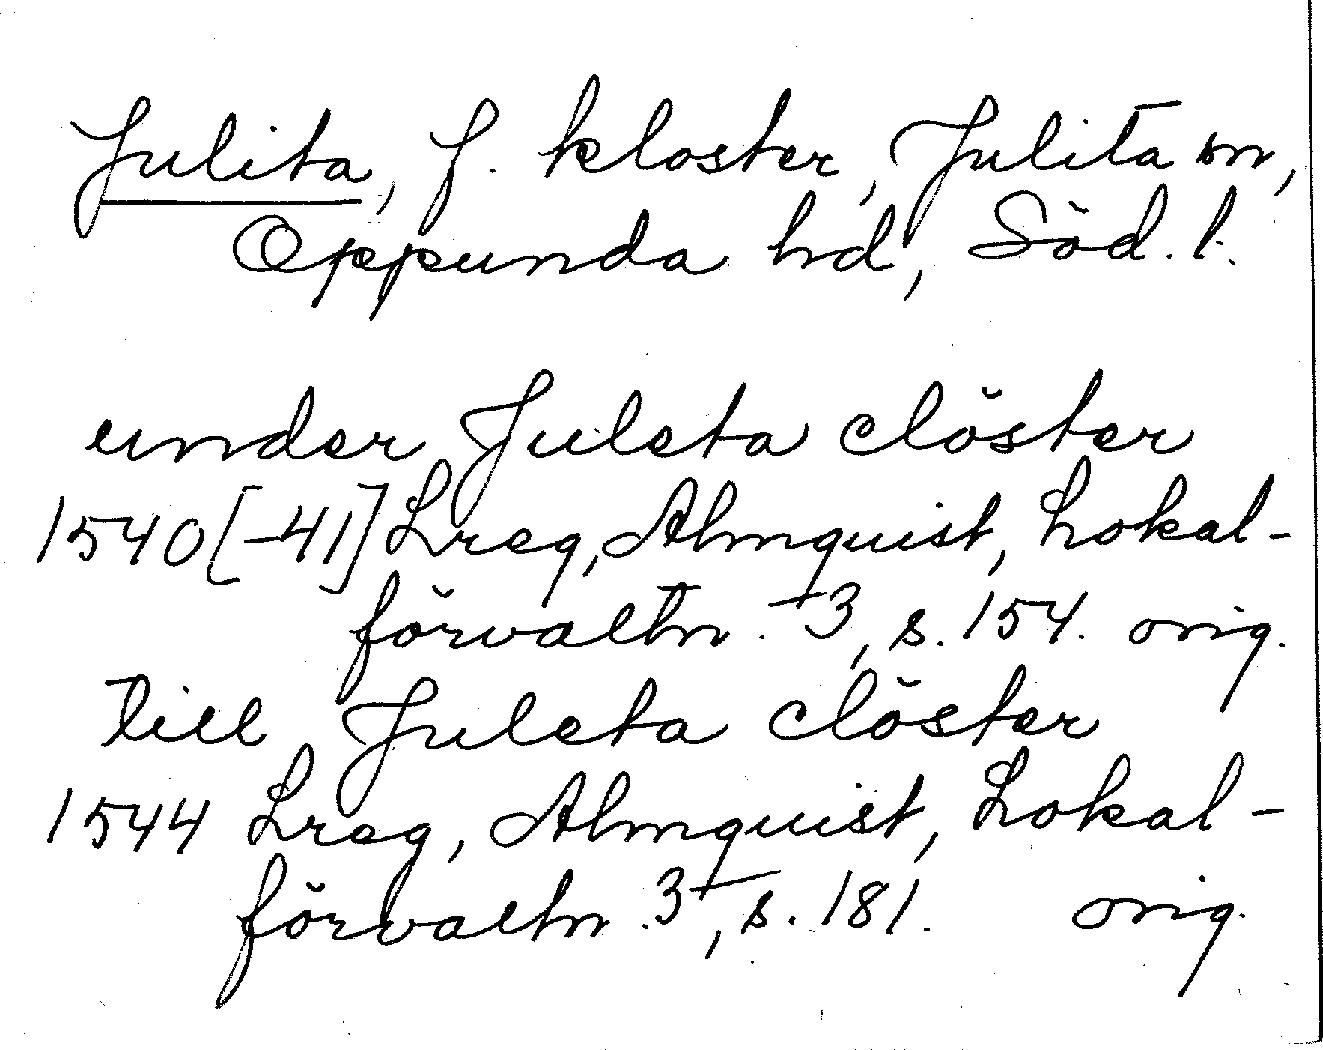 Julita, f. kloster, Julita sn,
Oppunda hd, Söd. l.
under Juleta clöster
1540[-41] Lreg, Almquist, Lokal-
förvaltn. 3, s. 154. orig.
till Juleta clöster
1544 Lreg, Almquist, Lokal-
förvaltn. 3, s. 181. orig.